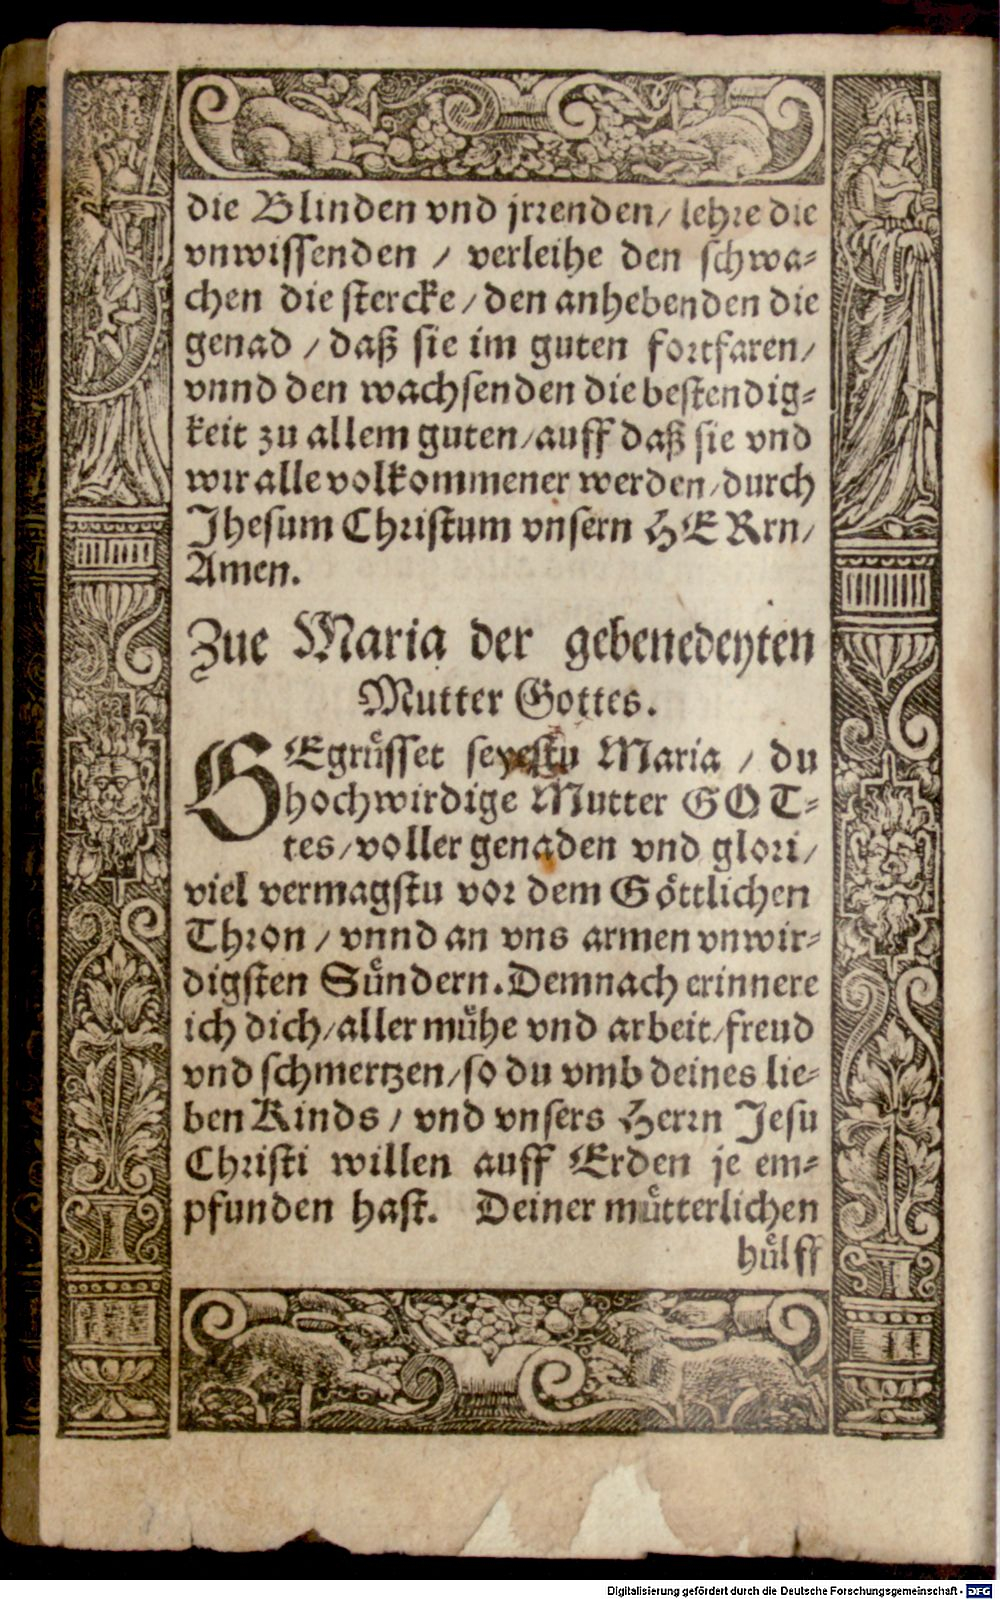 die Blinden vnd jrrenden/ lehre die
vnwissenden / verleihe den schwa-
chen die stercke/ den anhebenden die
genad / daß sie im guten fortfaren/
vnnd den wachsenden die bestendig-
keit zu allem guten/ auff daß sie vnd
wir alle volkommener werden/ durch
Jhesum Christum vnsern HERrn/
Amen.
Zue Maria der gebenedeyten
Mutter Gottes.
GEgrüsset seyestu Maria / du
hochwirdige Mutter GOT-
tes/ voller genaden vnd glori/
viel vermagstu vor dem Göttlichen
Thron / vnnd an vns armen vnwir-
digsten Sündern. Demnach erinnere
ich dich/ aller mühe vnd arbeit/ freud
vnd schmertzen/ so du vmb deines lie-
ben Kinds / vnd vnsers Herrn Jesu
Christi willen auff Erden je em-
pfunden hast. Deiner mütterlichen
hülff
Digitalisierung gefördert durch die Deutsche Forschungsgemeinschaft - DFG